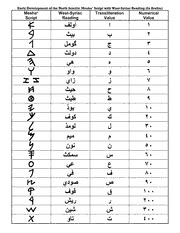 Early Development of the North Semitic 'Mesha' Script with West-Syriac Reading (in Arabic)
Mesha' Script West-Syriac Reading Transliteration Value Numerical Value
𐤀 اولف ا ١
𐤁 بيث ب ٢
𐤂 گومل گ ٣
𐤃 دولث د ٤
𐤄 هي ه ٥
𐤅 واو و ٦
𐤆 زاي ز ٧
𐤇 حيث ح ٨
𐤈 طيث ط ٩
𐤉 يوذ ي ١٠
𐤊 كوف ك ٢٠
𐤋 لومذ ل ٣٠
𐤌 ميم م ٤٠
𐤍 نون ن ٥٠
𐤎 سمكث س ٦٠
𐤏 عي ع ٧٠
𐤐 في ف ٨٠
𐤑 صودي ص ٩٠
𐤒 قوف ق ١٠٠
𐤓 ريش ر ٢٠٠
𐤔 شين ش ٣٠٠
𐤕 تاو ت ٤٠٠